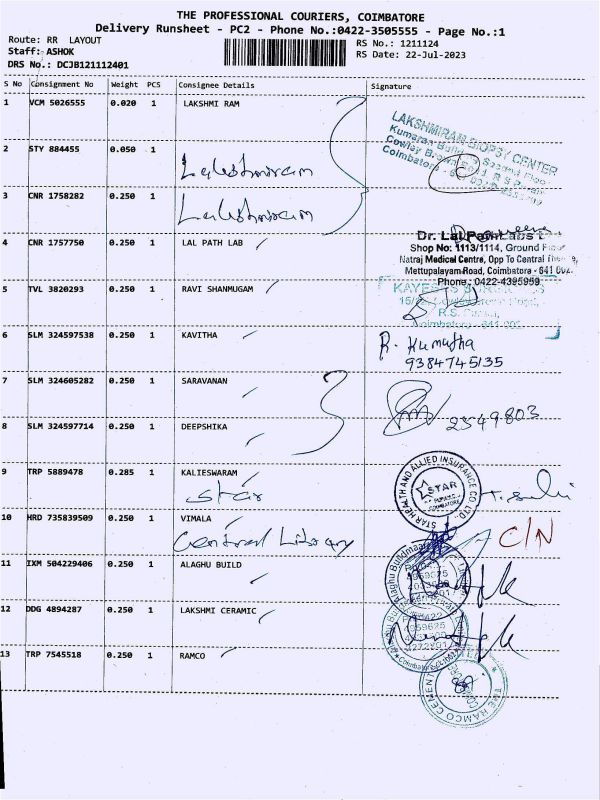 THE PROFESSIONAL COURIERS, COIMBATORE
Delivery Runsheet - PC2 - Phone No.:0422-3505555 - Page No.:1
Route: RR LAYOUT
RS No.: 1211124
Staff: ASHOK
RS Date: 22-Jul-2023
DRS No.: DCJB121112401
S No Consignment No Weight PCS Consignee Details Signature
1 VCM 5026555 0.020 1 LAKSHMI RAM
LAKSHMIRAM BIOPSY CENTER
Coimbatore
2 STY 884455 0.050 1
Lakshmiram
3 CNR 1758282 0.250 1
Lakshmiram
4 CNR 1757750 0.250 1 LAL PATH LAB
Dr. Lal PathLabs
Shop No: 1113/1114, Ground Floor
Natraj Medical Centre, Opp To Central
Mettupalayam Road, Coimbatore - 641
Phone: 0422-4395959
5 TVL 3820293 0.250 1 RAVI SHANMUGAM
R.S.
Coimbatore - 641 002
6 SLM 324597538 0.250 1 KAVITHA
R. Kumutha
9384745135
7 SLM 324605282 0.250 1 SARAVANAN
2549803
8 SLM 324597714 0.250 1 DEEPSHIKA
9 TRP 5889478 0.285 1 KALIESWARAM
Star
STAR HEALTH AND ALLIED INSURANCE CO. LTD.
STAR
COIMBATORE
10 HRD 735839509 0.250 1 VIMALA
Central Library
C/N
11 IXM 504229406 0.250 1 ALAGHU BUILD
12 DDG 4894287 0.250 1 LAKSHMI CERAMIC
13 TRP 7545518 0.250 1 RAMCO